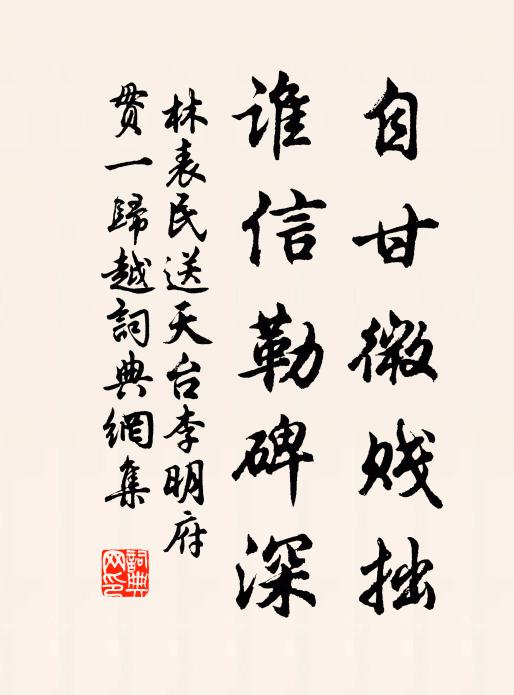 自甘微贱拙
谁信勒碑深
林表民送天台李明府
貫一歸越詞典網集
詞典网印